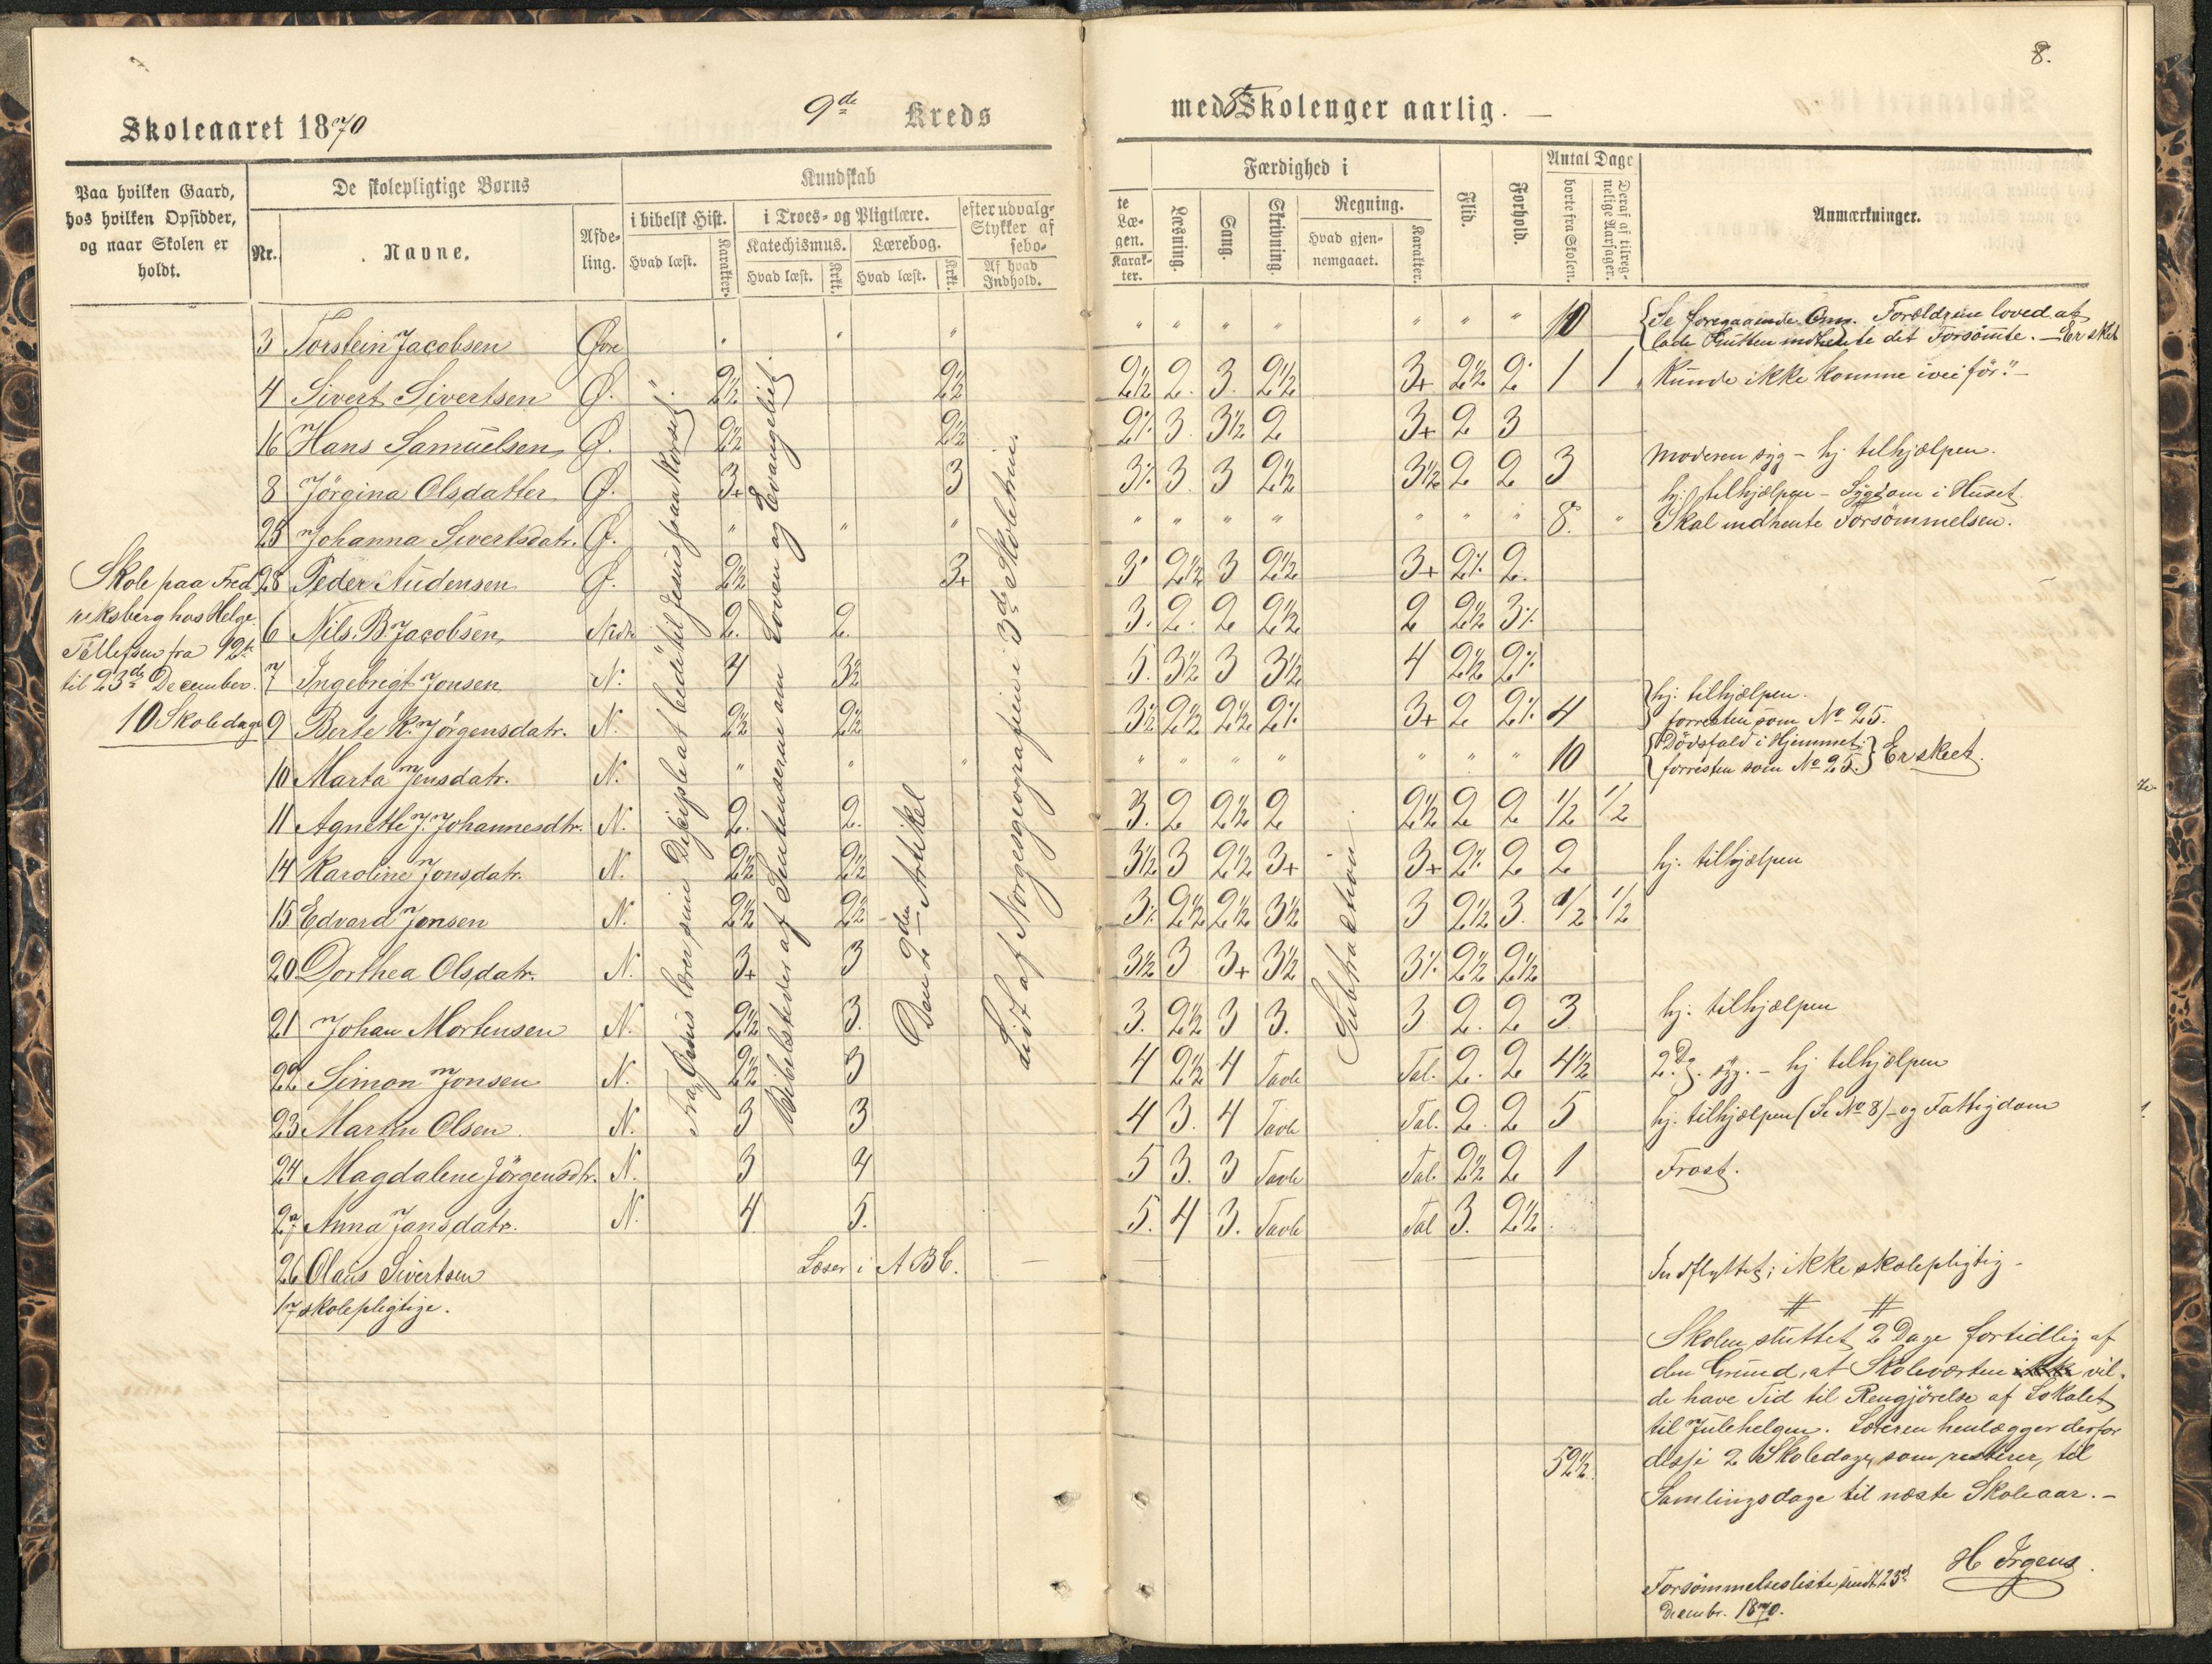 8.
Skoleaaret 1870
9de Kreds
med Skolenger aarlig.
Paa hvilken Gaard, hos hvilken Opsidder, og naar Skolen er holdt.
De skolepligtige Børns
Nr.
Navne.
Afdeling.
Kundskab
i bibelsk Hist.
Hvad læst.
Karakter.
i Troes- og Pligtlære.
Katechismus.
Hvad læst.
Krkt.
Lærebog.
Hvad læst.
Krkt.
efter udvalg-
Stykker af
sebo-
Af hvad
Indhold.
te
Læ-
gen.
Karak-
ter.
Færdighed i
Læsning.
Sang.
Skrivning.
Regning.
Hvad gjen-
nemgaaet.
Karakter.
Flid.
Forhold.
Antal Dage
borte fra Skolen.
Deraf af tilreg-
nelige Aarsager.
Anmærkninger.
Skole paa Fred
reksberg hos Helge
Tellefsen fra 12te
til 23de December.
10 Skoledage
3 Torstein Jacobsen Øvre " " " " " " " " " " 10 Se foregaaende Om. Forældrene loved at
lade Gutten indhente det Forsömte. — Er sket
4 Sivert Sivertsen Ø. " 2½ 2½ 2½ 2. 3. 2½ 3+ 2½ 2 1 1 Kunde ikke komme ivei för." —
16 Hans Samuelsen Ø. 2½ 2½ 2% 3. 3½ 2 3+ 2 3
8 Jörgina Olsdatter Ø. 3+ 3 3% 3. 3 2½ 3½ 2 2 3 Moderen syg – hj. tilhjælpen.
25 Johanna Sivertsdatr. Ø. " " " " " " " " " " 8. " hj. tilhjælpen – Sygdom i Huset
Skal indhente Forsömmelsen.
28 Peder Audensen Ø. 2½ 3+ 3 2½ 3 2½ 3+ 2% 2.
6 Nils. B. Jacobsen Nedr 2. 2 3. 2. 2 2½ 2 2½ 3%
7 Ingebrigt Jonsen N. 4 3½ 5. 3½ 3 3½ 4 2½ 2%
9 Berte K. Jörgensdatr. N. 2½ 2½ 3½ 2½ 2½ 2% 3+ 2 2% 4 hj. tilhjælpen.
forresten som No 25.
10 Marta Jensdatr. N. " " " " " " " " " " 10 Dödsfald i Hjemmet;
forresten som No 25. Er skeet.
11 Agnethe J. Johannesdtr. N. 2. 2. 3. 2 2½ 2 2½ 2 2 1/2 1/2
14 Karoline Jonsdatr. N. 2½ 2½ 3½ 3 2½ 3+ 3+ 2% 2 2 hj. tilhjælpen
15 Edvard Jonsen N. 2½ 2½ 3% 2½ 2½ 3½ 3 2½ 3. 1/2 1/2
20 Dorthea Olsdatr. N. 3+ 3 3½ 3 3+ 3½ 3% 2½ 2½
21 Johan Mortensen N. 2½ 3. 3. 2½ 3 3. 3 2. 2 3 hj. tilhjælpen
22 Simon Jonsen N. 2½ 3 4 2½ 4 Tavle Tal. 2. 2 4½ 2. Dg. syg. – hj tilhjælpen
23 Martin Olsen N. 3 3 4 3. 4 Tavle Tal. 2. 2 5 hj. tilhjælpen (Se No 8) – og Fattigdom
24 Magdalene Jörgensdtr. N. 3 4 5 3. 3 Tavle Tal. 2½ 2 1 Frost.
27 Anna Jansdatr. N. 4. 5. 5. 4 3. Tavle Tal 3. 2½
26 Olaus Sivertsen Læser i A B C. — Indflyttet; ikke skolepligtig –
17 skolepligtige.
Fra Jesus lærer sine Disciple at bede til Jesus paa Korset
Bibelsteder af Sentenserne om Loven og Evangeliet
Den 2den Artikel
Lidt af Norgesgeografien i 3de Skoletrin.
Subtraktion.
Skolen sluttet 2 Dage fortidlig af
den Grund, at Skoleverten ikke vil-
de have Tid til Rengjörelse af Lokalet
til Julehelgen. Læreren henlægger derfor
disse 2 Skoledage, som resterer, til
Samlingsdage til næste Skoleaar. –
52½
H Irgens.
Forsömmelsesliste sendt 23de
Decembr. 1870.